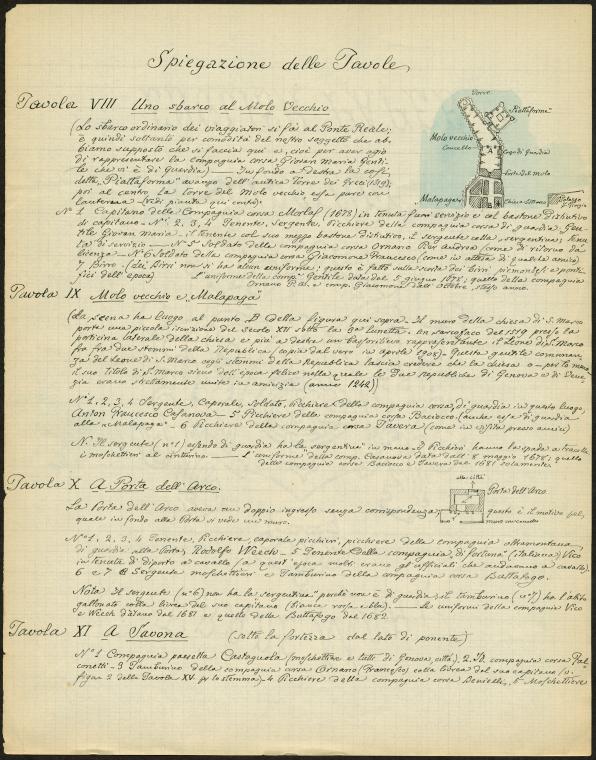 Spiegazione delle Tavole
Tavola VIII Uno sbarco al Molo Vecchio
(Lo sbarco ordinario dei viaggiatori si fa al Ponte Reale;
è quindi soltanto per comodità del nostro soggetto che ab-
biamo supposto che si faccia qui e, cioè per aver agio
di rappresentare la compagnia corsa Giovan Maria Genti-
le che vi è di Guardia). In fondo a destra la cosi-
detta "Piattaforma" avanzo dell'antica Torre dei Greci (1319);
poi al centro la torre del Molo vecchio essa pure con
lanterna (vedi pianta qui contro)
Torre
Piattaforma
Molo vecchio
Cancello
A
Corpo di Guardia
Porta del Molo
Malapaga
B
Chiesa S. Marco
Palazzo S. Giorgio
N° 1 Capitano della Compagnia corsa (1678) in tenuta fuori servizio e col bastone distintivo
di capitano - N° 2, 3, 4 Tenente, Sergente, Picchiere della compagnia corsa di guardia Gen-
tile Giovan Maria. il tenente col suo mezzo bastone distintivo, il sergente colla "sergentina" in tenu-
ta di servizio - N° 5 Soldato della compagnia corsa Ornano Pier Andrea (come di ritorno da
licenza - N° 6 Soldato della compagnia corsa Giacomone Francesco (come in attesa di qualche amico)
7 Birro (dei Birri non si ha alcun uniforme; questo è fatto sulla scorta dei birri piemontesi e ponti-
fici dell'epoca) L'uniforme della comp. Gentile data dal 5 giugno 1678; quello della compagnia
Ornano P. A. e comp. Giacomone dall'Ottobre, stesso anno.
Tavola IX Molo vecchio e Malapaga
(La scena ha luogo al punto B della figura qui sopra. Il muro della chiesa di S. Marco
porta una piccola iscrizione del secolo XII sotto la 2ª lunetta. un sarcofago del 1319 presso la
porticina laterale della chiesa e più a destra un bassorilievo rappresentante il Leone di S. Marco
fra due stemmi della Repubblica (copia dal vero in aprile 1908) - Questa gentile comunan-
za del leone di S. Marco agli stemmi della Repubblica lascia credere che la chiesa o - per lo meno
il suo titolo di S. Marco sieno dell'epoca felice nella quale le Due repubbliche di Genova e di Vene-
zia erano strettamente unite in amicizia (anno 1242)
N° 1, 2, 3, 4 Sergente, Caporale, Soldato, Picchiere della compagnia corsa di guardia in questo luogo,
Anton Francesco Casanova - 5 Picchiere della compagnia corsa Baciocco (anche essa di guardia
alla "Malapaga" - 6 Picchiere della compagnia corsa Tavera (come in visita presso amici)
N. Il sergente (n° 1) essendo di guardia ha la "sergentina" in mano - I Picchieri hanno la spada a tracolla
i moschettieri al cinturino. - L'uniforme della comp. Casanova data dall'8 maggio 1678; quello
delle compagnie corse Baciocco e Tavera dal 1681 solamente.
Tavola X A Porta dell'Arco.
La Porta dell'Arco aveva un doppio ingresso senza corrispondenza,
questo è il motivo pel
quale in fondo alla Porta si vede un muro.
alla città
Porta dell'Arco
muro nascondente
N° 1, 2, 3, 4 Tenente, Picchiere, caporale picchieri, picchiere della compagnia oltramontana
di guardia alla Porta, Rodolfo Weech - 5 Tenente della compagnia di fortuna (italiana) Vico
in tenuta di diporto a cavallo (a quest'epoca molti erano gli ufficiali che andavano a cavallo).
6 e 7 Sergente moschettieri e Tamburino della compagnia corsa Buttafogo.
Nota Il sergente (n° 6) non ha la "sergentina" perchè non è di guardia; il tamburino (n° 7) ha l'abito
gallonato colla livrea del suo capitano (bianca rossa e blu). - Le uniformi della compagnie Vico
e Weech datano dal 1681 e quelle della Buttafogo dal 1682.
Tavola XI A Savona (sotto la fortezza dal lato di ponente)
N° 1 Compagnia paesella Castagnola (moschettiere e tutti di Genova città). 2. id. compagnia corsa Fal-
conetti - 3 Tamburino della compagnia corsa Ornano (Francesco) colla livrea del suo capitano (v.
figura 2 della Tavola XV. per lo stemma) - 4 Picchiere della compagnia corsa - 5 Moschettiere